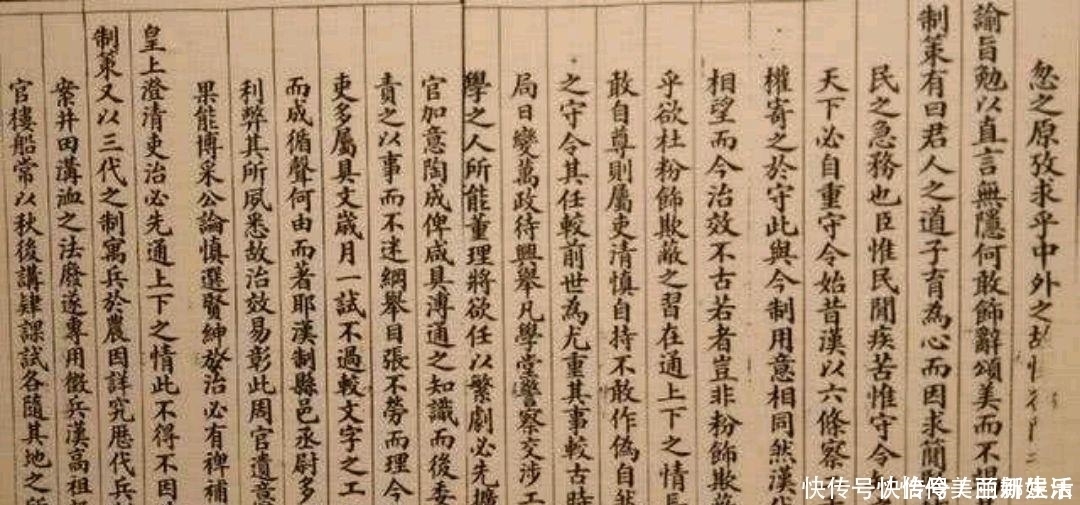 忽之原攷求乎中外之故
諭旨勉以直言無隱何敢飾辭頌美而不
制策有曰君人之道子育為心而因求簡
民之急務也臣惟民閒疾苦惟守令
天下必自重守令始昔漢以六條察
權寄之於守此與今制用意相同然漢
相望而今治效不古若者豈非粉飾欺蔽
乎欲杜粉飾欺蔽之習在通上下之情長
敢自尊則屬吏清慎自持不敢作偽自
之守令其任較前世為尤重其事較古時
局日變萬政待興舉凡學堂警察交涉工
學之人所能董理將欲任以繁劇必先擴
官加意陶成俾咸具溥通之知識而後委
責之以事而不迷綱舉目張不勞而理今
吏多屬具文歲月一試不過較文字之工
而成循聲何由而著耶漢制縣邑丞尉多
利弊其所夙悉故治效易彰此周官遺意
果能博采公論慎選賢紳於治必有裨補
皇上澄清吏治必先通上下之情此不得不因
制策又以三代之制寓兵於農因詳究歷代兵
案井田溝洫之法廢遂專用徵兵漢高祖
官樓船常以秋後講肄課試各隨其地之所
快传号